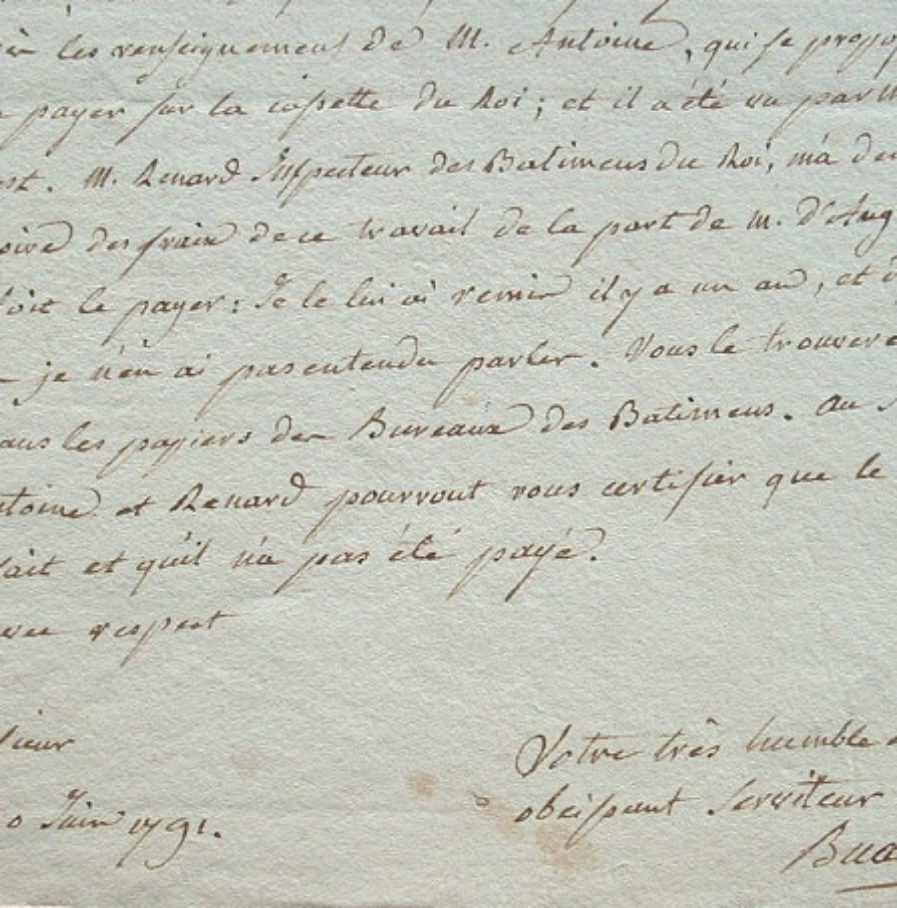 les renseignemens de M. Antoine, qui se propo
payer sur la cassette du Roi; et il a été vu par M
M. Renard Inspecteur des Batimens du Roi, m'a de
oire des fraix de ce travail de la part de M. d'Ang
doit le payer: Je le lui ai remis il y a un an, et
je n'en ai pas entendu parler. Vous le trouvere
ans les papiers des Bureaux des Batimens. Au
ntoine et Renard pourront vous certifier que le
fait et qu'il n'a pas été payé.
vec respect
sieur
Votre très humble
obeissant Serviteur
0 Juin 1791.
Bua